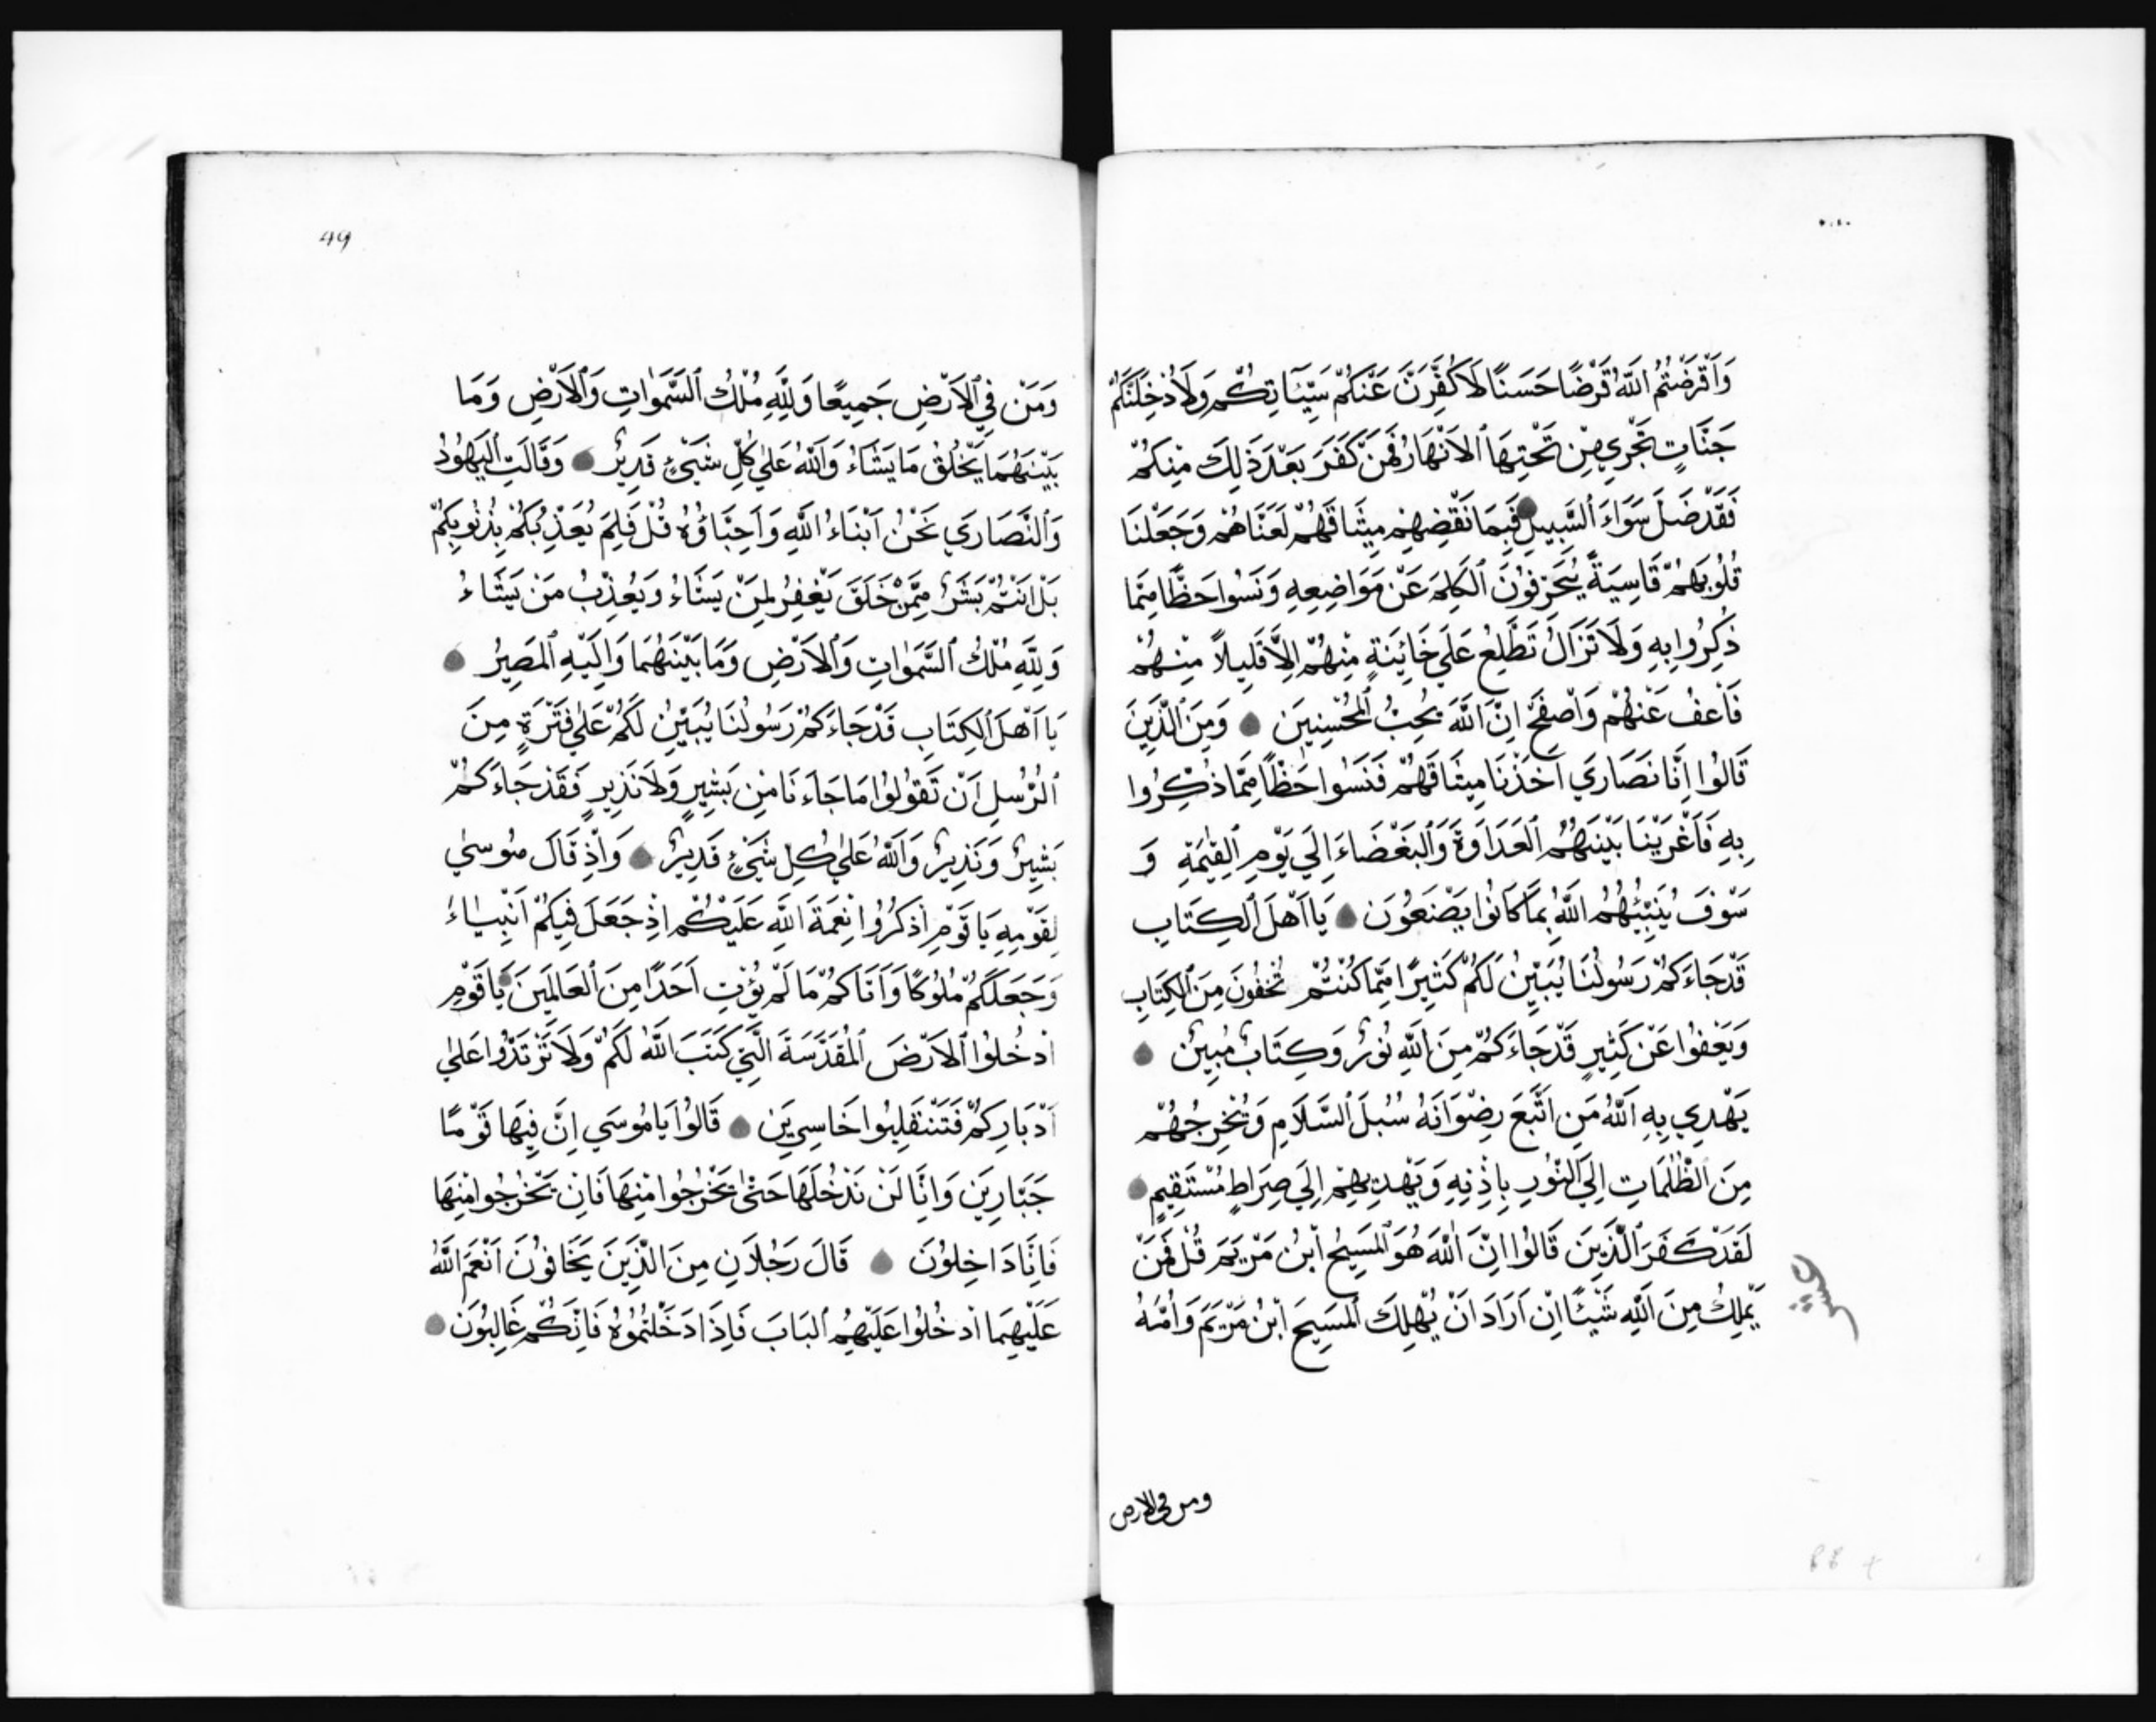 وَأَقْرَضْتُمُ اللَّهَ قَرْضًا حَسَنًا لَأُكَفِّرَنَّ عَنْكُمْ سَيِّئَاتِكُمْ وَلَأُدْخِلَنَّكُمْ
جَنَّاتٍ تَجْرِي مِنْ تَحْتِهَا الْأَنْهَارُ فَمَنْ كَفَرَ بَعْدَ ذَلِكَ مِنْكُمْ
فَقَدْ ضَلَّ سَوَاءَ السَّبِيلِ فَبِمَا نَقْضِهِمْ مِيثَاقَهُمْ لَعَنَّاهُمْ وَجَعَلْنَا
قُلُوبَهُمْ قَاسِيَةً يُحَرِّفُونَ الْكَلِمَ عَنْ مَوَاضِعِهِ وَنَسُوا حَظًّا مِمَّا
ذُكِّرُوا بِهِ وَلَا تَزَالُ تَطَّلِعُ عَلَى خَائِنَةٍ مِنْهُمْ إِلَّا قَلِيلًا مِنْهُمْ
فَاعْفُ عَنْهُمْ وَاصْفَحْ إِنَّ اللَّهَ يُحِبُّ الْمُحْسِنِينَ وَمِنَ الَّذِينَ
قَالُوا إِنَّا نَصَارَي أَخَذْنَا مِيثَاقَهُمْ فَنَسُوا حَظًّا مِمَّا ذُكِّرُوا
بِهِ فَأَغْرَيْنَا بَيْنَهُمُ الْعَدَاوَةَ وَالْبَغْضَاءَ إِلَي يَوْمِ الْقِيٰمَةِ وَ
سَوْفَ يُنَبِّئُهُمُ اللَّهُ بِمَا كَانُوا يَصْنَعُونَ يَا أَهْلَ الْكِتَابِ
قَدْ جَاءَكُمْ رَسُولُنَا يُبَيِّنُ لَكُمْ كَثِيرًا مِمَّا كُنْتُمْ تُخْفُونَ مِنَ الْكِتَابِ
وَيَعْفُوا عَنْ كَثِيرٍ قَدْ جَاءَكُمْ مِنَ اللَّهِ نُورٌ وَكِتَابٌ مُبِينٌ
يَهْدِي بِهِ اللَّهُ مَنِ اتَّبَعَ رِضْوَانَهُ سُبُلَ السَّلَامِ وَيُخْرِجُهُمْ
مِنَ الظُّلُمَاتِ إِلَي النُّورِ بِإِذْنِهِ وَيَهْدِيهِمْ إِلَي صِرَاطٍ مُسْتَقِيمٍ
لَقَدْ كَفَرَ الَّذِينَ قَالُوا إِنَّ اللَّهَ هُوَ الْمَسِيحُ ابْنُ مَرْيَمَ قُلْ فَمَنْ
يَمْلِكُ مِنَ اللَّهِ شَيْئًا إِنْ أَرَادَ أَنْ يُهْلِكَ الْمَسِيحَ ابْنَ مَرْيَمَ وَأُمَّهُ
ومن في الارض
49
وَمَنْ فِي الْأَرْضِ جَمِيعًا وَلِلَّهِ مُلْكُ السَّمٰوَاتِ وَالْأَرْضِ وَمَا
بَيْنَهُمَا يَخْلُقُ مَا يَشَاءُ وَاللَّهُ عَلٰي كُلِّ شَيْءٍ قَدِيرٌ وَقَالَتِ الْيَهُودُ
وَالنَّصَارَي نَحْنُ أَبْنَاءُ اللَّهِ وَأَحِبَّاؤُهُ قُلْ فَلِمَ يُعَذِّبُكُمْ بِذُنُوبِكُمْ
بَلْ أَنْتُمْ بَشَرٌ مِمَّنْ خَلَقَ يَغْفِرُ لِمَنْ يَشَاءُ وَيُعَذِّبُ مَنْ يَشَاءُ
وَلِلَّهِ مُلْكُ السَّمٰوَاتِ وَالْأَرْضِ وَمَا بَيْنَهُمَا وَإِلَيْهِ الْمَصِيرُ
يَا أَهْلَ الْكِتَابِ قَدْ جَاءَكُمْ رَسُولُنَا يُبَيِّنُ لَكُمْ عَلٰي فَتْرَةٍ مِنَ
الرُّسُلِ أَنْ تَقُولُوا مَا جَاءَنَا مِنْ بَشِيرٍ وَلَا نَذِيرٍ فَقَدْ جَاءَكُمْ
بَشِيرٌ وَنَذِيرٌ وَاللَّهُ عَلٰي كُلِّ شَيْءٍ قَدِيرٌ وَإِذْ قَالَ مُوسٰي
لِقَوْمِهِ يَا قَوْمِ اذْكُرُوا نِعْمَةَ اللَّهِ عَلَيْكُمْ إِذْ جَعَلَ فِيكُمْ أَنْبِيَاءَ
وَجَعَلَكُمْ مُلُوكًا وَآتَاكُمْ مَا لَمْ يُؤْتِ أَحَدًا مِنَ الْعَالَمِينَ يَا قَوْمِ
ادْخُلُوا الْأَرْضَ الْمُقَدَّسَةَ الَّتِي كَتَبَ اللَّهُ لَكُمْ وَلَا تَرْتَدُّوا عَلٰي
أَدْبَارِكُمْ فَتَنْقَلِبُوا خَاسِرِينَ قَالُوا يَا مُوسَي إِنَّ فِيهَا قَوْمًا
جَبَّارِينَ وَإِنَّا لَنْ نَدْخُلَهَا حَتّٰي يَخْرُجُوا مِنْهَا فَإِنْ يَخْرُجُوا مِنْهَا
فَإِنَّا دَاخِلُونَ قَالَ رَجُلَانِ مِنَ الَّذِينَ يَخَافُونَ أَنْعَمَ اللَّهُ
عَلَيْهِمَا ادْخُلُوا عَلَيْهِمُ الْبَابَ فَإِذَا دَخَلْتُمُوهُ فَإِنَّكُمْ غَالِبُونَ